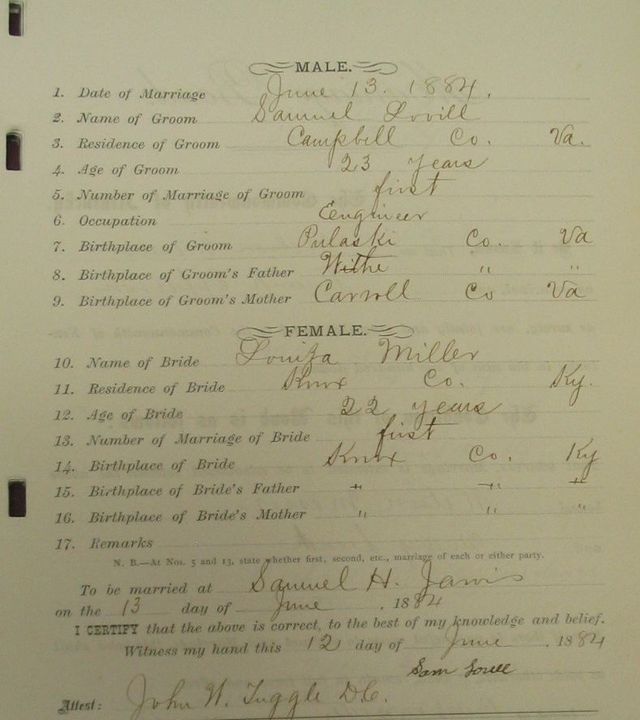 MALE.
1. Date of Marriage June 13. 1884.
2. Name of Groom Samuel Lovill
3. Residence of Groom Campbell Co. Va.
4. Age of Groom 23 years
5. Number of Marriage of Groom first
6. Occupation Eengineer
7. Birthplace of Groom Pulaski Co. Va
8. Birthplace of Groom's Father Withe " "
9. Birthplace of Groom's Mother Carroll Co Va
FEMALE.
10. Name of Bride Miller
11. Residence of Bride Knox Co. Ky.
12. Age of Bride 22 years
13. Number of Marriage of Bride first
14. Birthplace of Bride Knox Co. Ky
15. Birthplace of Bride's Father " " "
16. Birthplace of Bride's Mother " " "
17. Remarks
N. B.—At Nos. 5 and 13, state whether first, second, etc., marriage of each or either party.
To be married at Samuel H. Jarvis
on the 13 day of June . 1884
I CERTIFY that the above is correct, to the best of my knowledge and belief.
Witness my hand this 12 day of June . 1884
Sam
Attest: John W. Tuggle D.C.